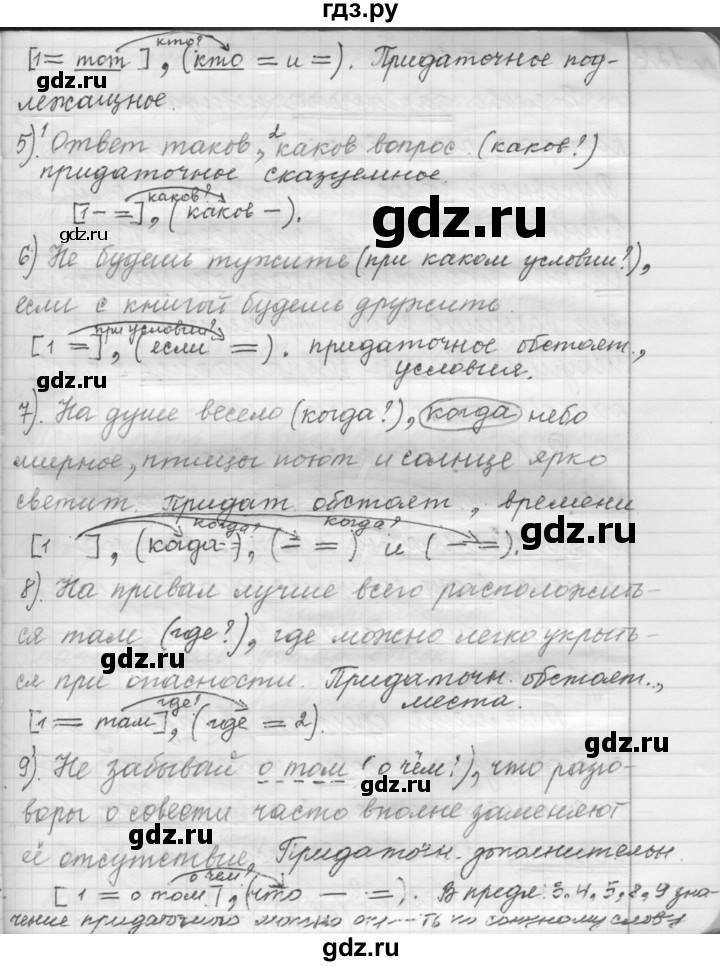 гдз.ру
кто?
[1 = тот ], (кто = и =). Придаточное под-
gdz.ru
лежащное.
5). 1 Ответ таков, 2 каков вопрос. (каков?)
придаточное сказуемное.
каков?
[1 - =], (каков -).
gdz.ru
gdz.ru
6) Не будешь тужить (при каком условии?),
если с книгой будешь дружить.
при условии?
[1 =], (если =). придаточное обстоят.,
gdz.ru
условия.
7). На душе весело (когда?), когда небо
мирное, птицы поют и солнце ярко
светит. Придат. обстоят., времени
gdz.ru
когда? когда?
[1 ], (когда - =), (- =) и (- =).
8). На привал лучше всего расположить-
ся там (где?), где можно легко укрыть-
gdz.ru
ся при опасности. Придаточн. обстоят.,
места.
где?
[1 = там], (где = 2).
gdz.ru
9). Не забывай о том (о чём?), что разго-
воры о совести часто вполне заменяют
gdz.ru
её отсутствие. Придаточн. дополнительн.
о чём?
[1 = о том], (что - =). В предл. 3, 4, 5, 8, 9 зна-
чение придаточного можно по союзному слову
gdz.ru